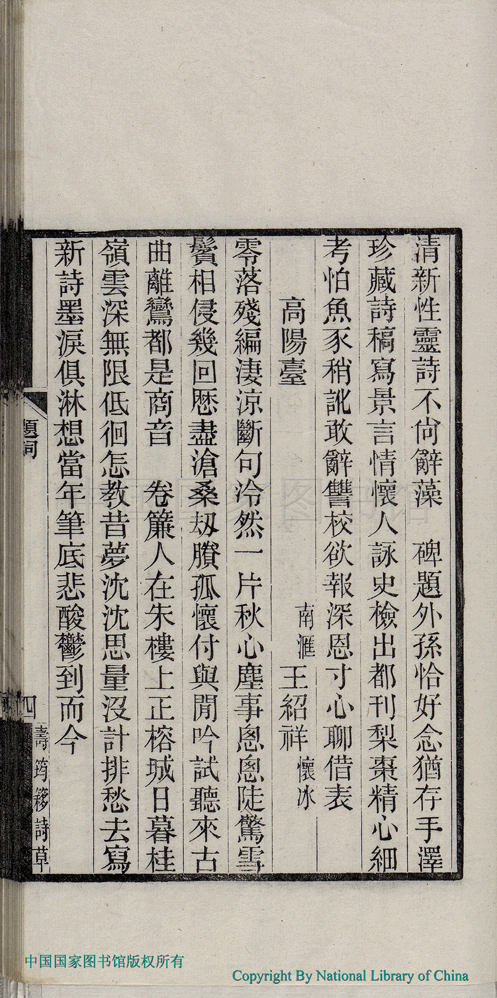 清新性靈詩不尙辭藻　碑題外孫恰好念猶存手澤
珍藏詩稿寫景言情懷人詠史檢出都刊梨棗精心細
考怕魚豕稍訛敢辭讐校欲報深恩寸心聊借表
高陽臺　南滙王紹祥懷冰
零落殘編淒涼斷句泠然一片秋心塵事悤悤陡驚雪
鬢相侵幾回歷盡滄桑刼賸孤懷付與閒吟試聽來古
曲離鸞都是商音　卷簾人在朱樓上正榕城日暮桂
嶺雲深無限低徊怎教昔夢沈沈思量沒計排愁去寫
新詩墨淚俱淋想當年筆底悲酸鬱到而今
題詞
四
壽筠簃詩草
中国国家图书馆版权所有
Copyright By National Library of China